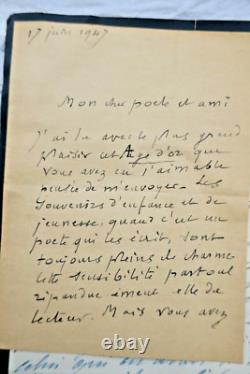 17 juin 1947
Mon cher poete et ami
J'ai lu avec le plus grand
plaisir cet Age d'or que
vous avez eu l'aimable
pensée de m'envoyer. Les
souvenirs d'enfance et de
jeunesse, quand c'est un
poete qui les écrit, sont
toujours pleins de charme
cette sensibilité partout
répandue émeut elle du
lecteur. Mais vous avez
celui qui